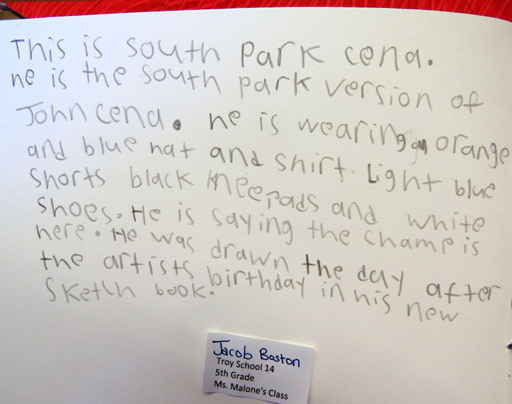 This is south park cena.
he is the south park version of
John cena. he is wearing an orange
and blue hat and shirt. Light blue
shorts black kneepads and white
shoes. He is saying the champ is
here. He was drawn the day after
the artists birthday in his new
sketch book.
Jacob Baston
Troy School 14
5th Grade
Ms. Malone's Class